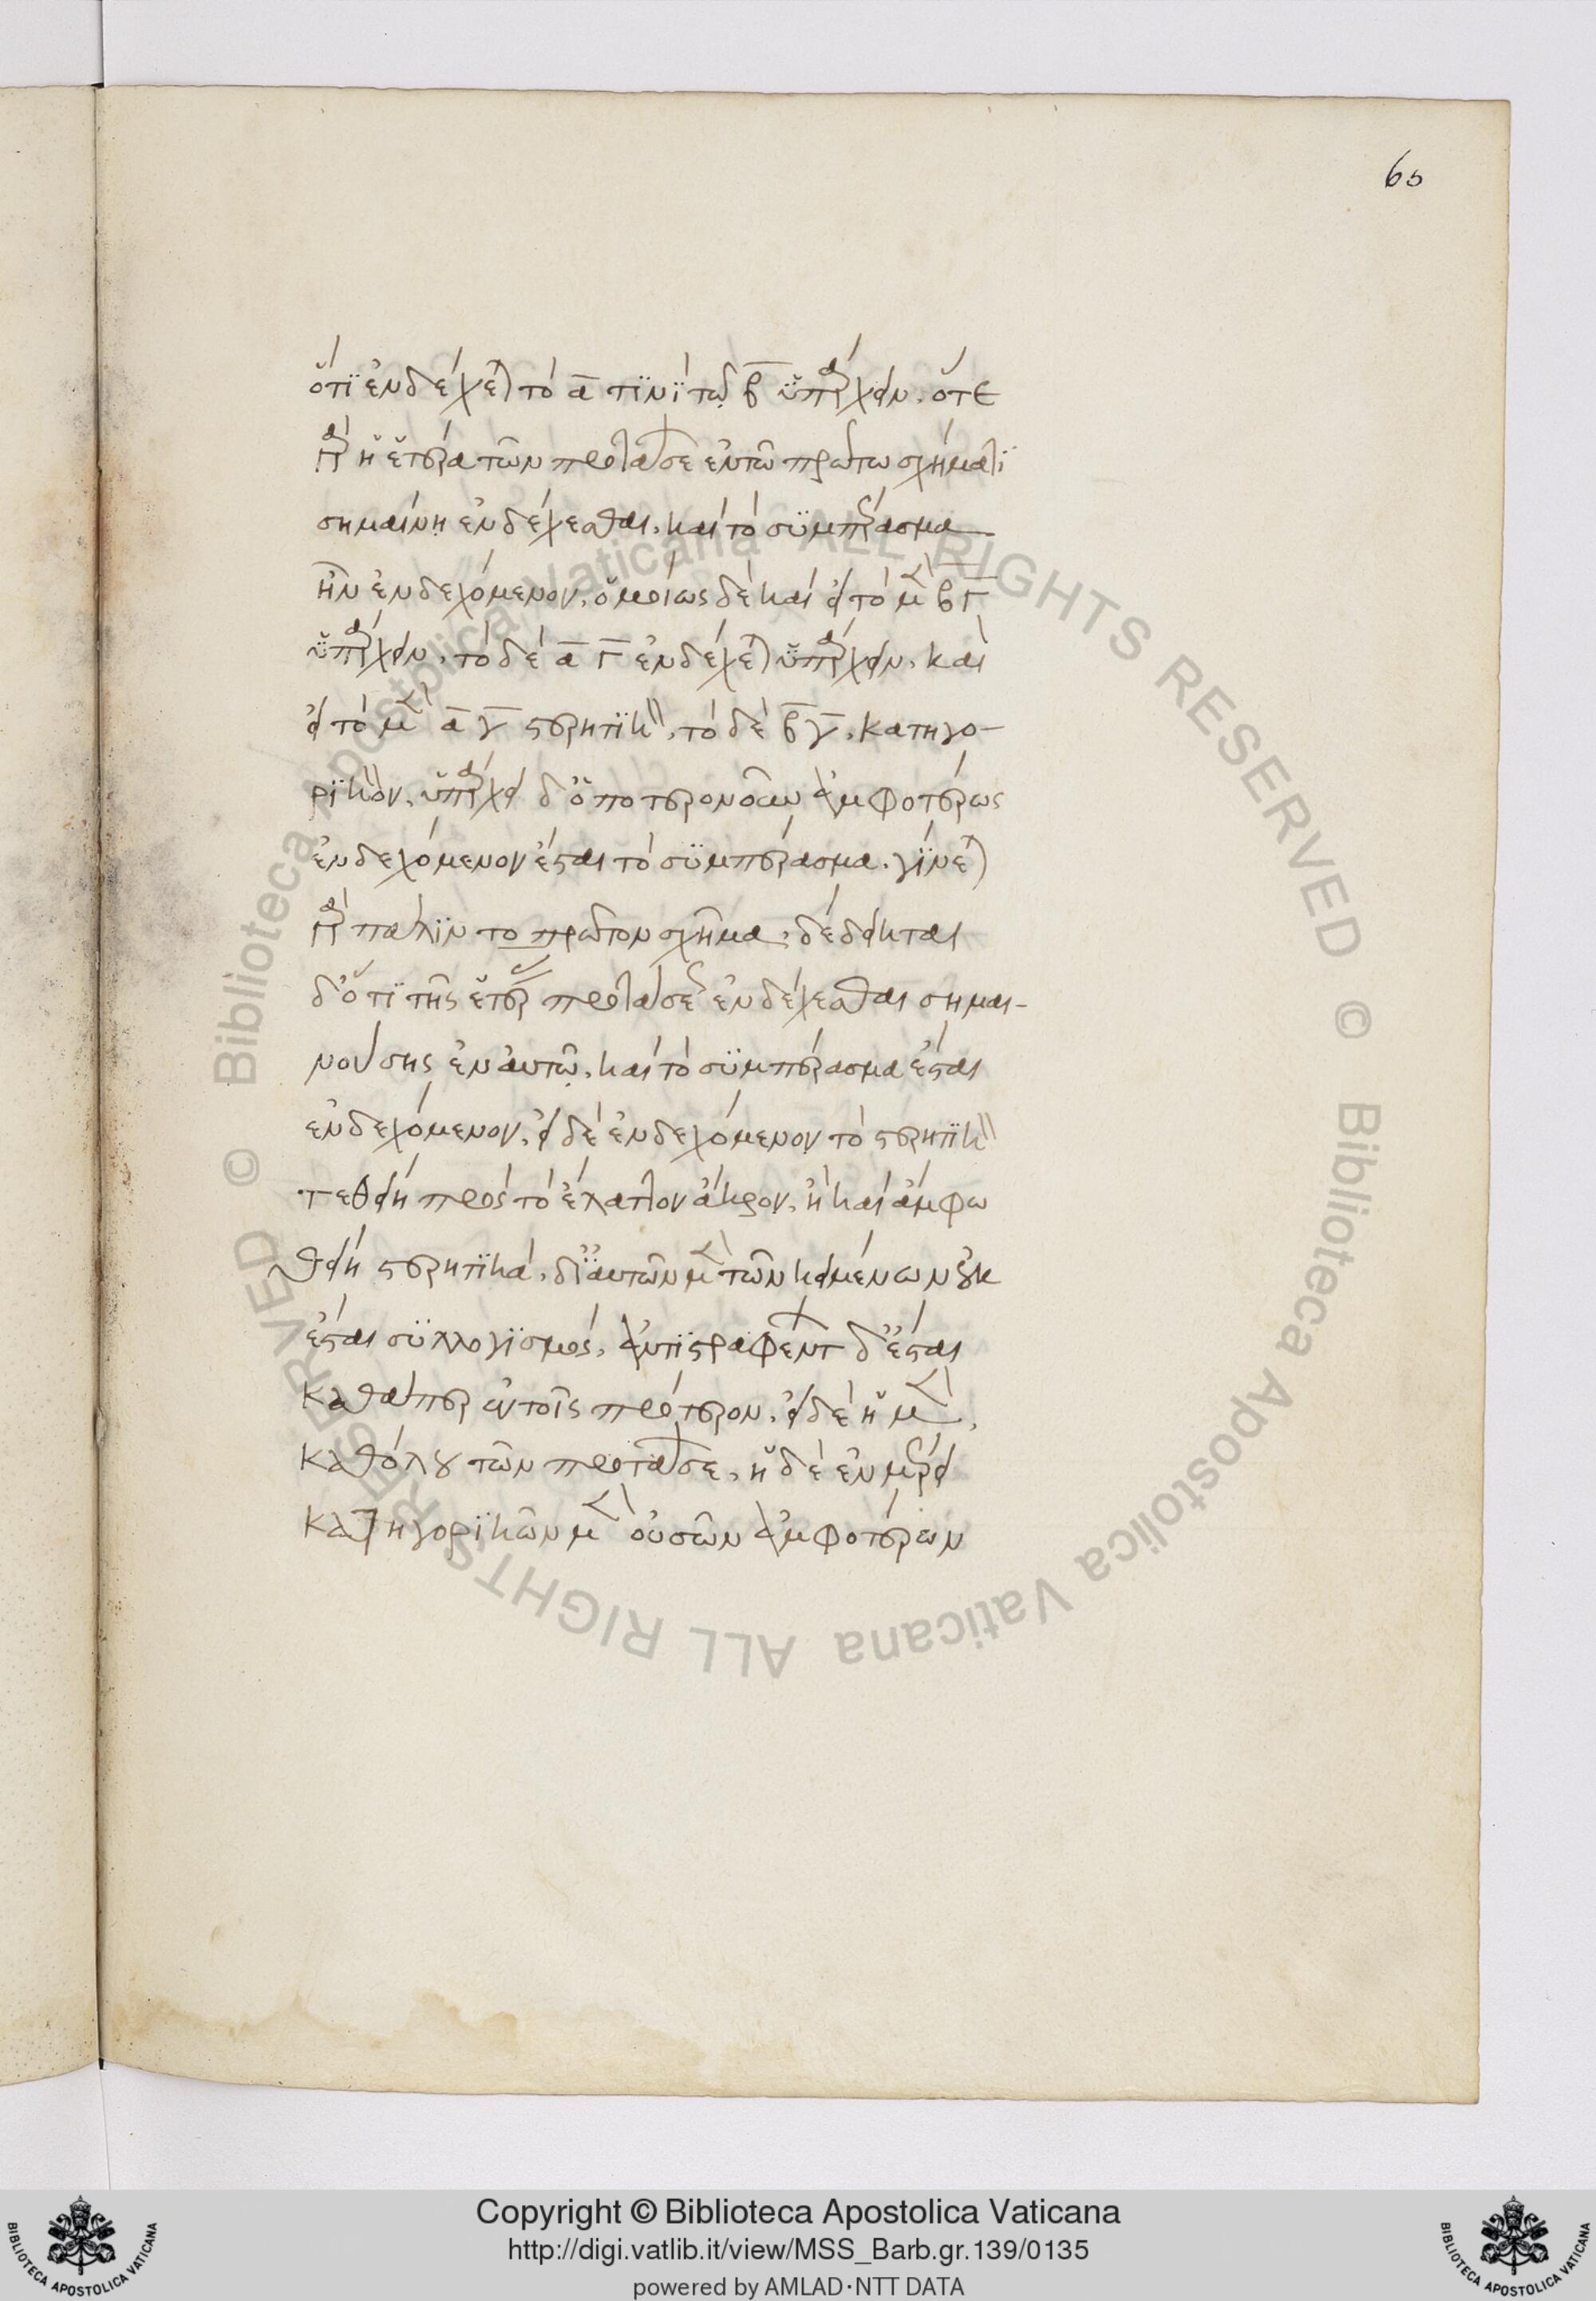 60
ὅτϊ ἐνδέχεται τὸ α τϊνϊ τῷ β ὑπάρχειν. ὅτε
γὰρ ἡ ἑτέρα τῶν προτάσεων ἐν τῶ πρώτω σχήματϊ
σημαίνῃ ἐνδέχεσθαι, καὶ τὸ συμπέρασμα
ἦν ἐνδεχόμενον. ὁμοίως δὲ καὶ εἰ τὸ μὲν β γ
ὑπάρχειν, τὸ δὲ α γ ἐνδέχεται ὑπάρχειν. καὶ
εἰ τὸ μὲν α γ στερητϊκὸν, τὸ δὲ β γ, κατηγο-
ρϊκὸν, ὑπάρχει δ' ὁποτερονοῦν ἀμφοτέρως
ἐνδεχόμενον ἔσται τὸ συμπέρασμα. γίνεται
γὰρ πάλϊν το πρῶτον σχῆμα, δέδεικται
δ' ὅτϊ τῆς ἑτέρας προτάσεως ἐνδέχεσθαι σημαι-
νούσης ἐν αὐτῷ, καὶ τὸ συμπέρασμα ἔσται
ἐνδεχόμενον, εἰ δὲ ἐνδεχόμενον τὸ στερητϊκὸν
τεθείη πρὸς τὸ ἔλαττον ἄκρον, ἢ καὶ ἄμφω
θείη στερητϊκὰ, δι' αὐτῶν μὲν τῶν κειμένων οὐκ
ἔσται συλλογϊσμός, ἀντϊστραφέντων δ' ἔσται
καθάπερ ἐν τοῖς πρότερον. εἰ δὲ ἡ μὲν,
καθόλου τῶν προτάσεων, ἡ δὲ ἐν μέρει
κατηγορϊκῶν μὲν οὐσῶν ἀμφοτέρων
Copyright © Biblioteca Apostolica Vaticana
http://digi.vatlib.it/view/MSS_Barb.gr.139/0135
powered by AMLAD·NTT DATA